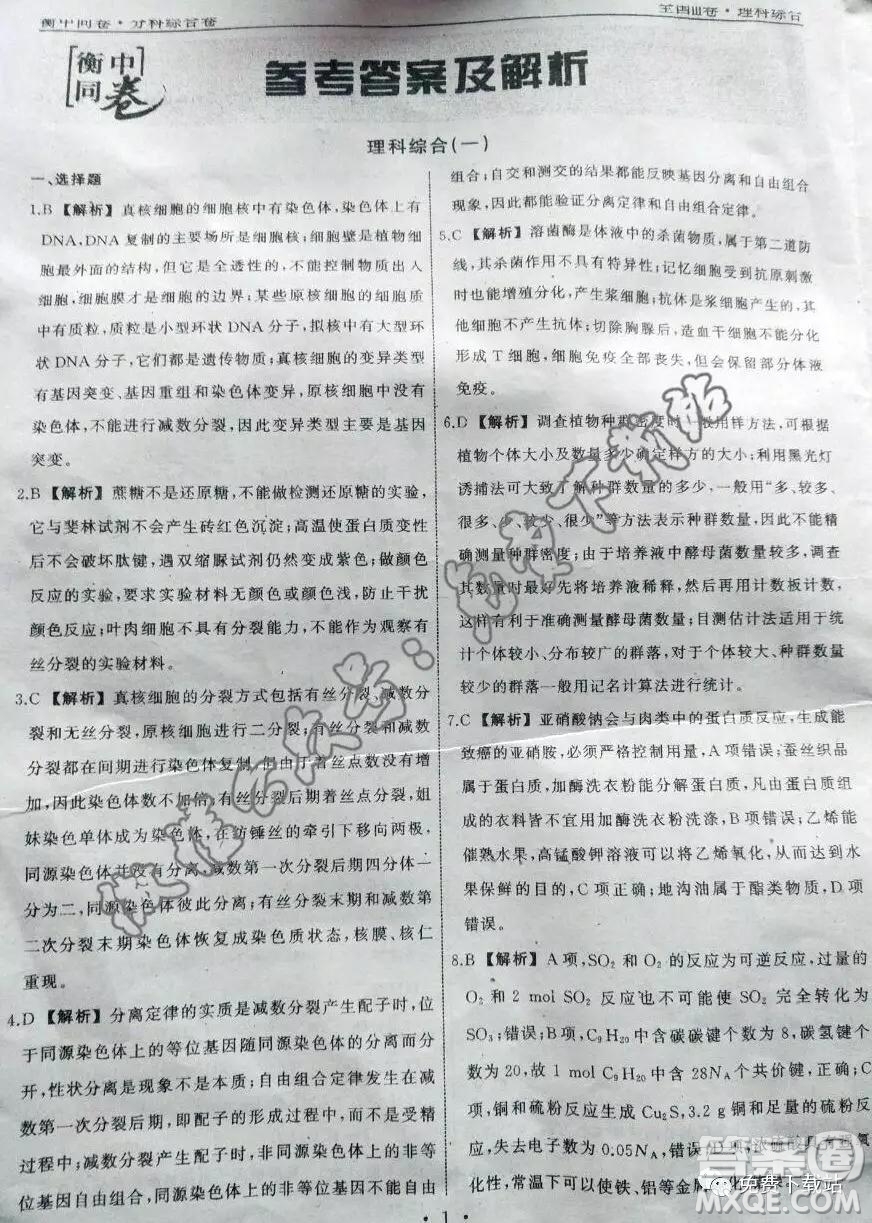 衡中同卷·分科综合卷
全国Ⅲ卷·理科综合
衡中
同卷
参考答案及解析
理科综合(一)
一、选择题
1.B 【解析】真核细胞的细胞核中有染色体,染色体上有
DNA,DNA复制的主要场所是细胞核;细胞壁是植物细
胞最外面的结构,但它是全透性的,不能控制物质出入
细胞,细胞膜才是细胞的边界;某些原核细胞的细胞质
中有质粒,质粒是小型环状DNA分子,拟核中有大型环
状DNA分子,它们都是遗传物质;真核细胞的变异类型
有基因突变、基因重组和染色体变异,原核细胞中没有
染色体,不能进行减数分裂,因此变异类型主要是基因
突变。
2.B 【解析】蔗糖不是还原糖,不能做检测还原糖的实验,
它与斐林试剂不会产生砖红色沉淀;高温使蛋白质变性
后不会破坏肽键,遇双缩脲试剂仍然变成紫色;做颜色
反应的实验,要求实验材料无颜色或颜色浅,防止干扰
颜色反应;叶肉细胞不具有分裂能力,不能作为观察有
丝分裂的实验材料。
3.C 【解析】真核细胞的分裂方式包括有丝分裂、减数分
裂和无丝分裂,原核细胞进行二分裂;有丝分裂和减数
分裂都在间期进行染色体复制,但由于着丝点数没有增
加,因此染色体数不加倍;有丝分裂后期着丝点分裂,姐
妹染色单体成为染色体,在纺锤丝的牵引下移向两极,
同源染色体并没有分离,减数第一次分裂后期四分体一
分为二,同源染色体彼此分离;有丝分裂末期和减数第
二次分裂末期染色体恢复成染色质状态,核膜、核仁
重现。
4.D 【解析】分离定律的实质是减数分裂产生配子时,位
于同源染色体上的等位基因随同源染色体的分离而分
开,性状分离是现象不是本质;自由组合定律发生在减
数第一次分裂后期,即配子的形成过程中,而不是受精
过程中;减数分裂产生配子时,非同源染色体上的非等
位基因自由组合,同源染色体上的非等位基因不能自由
组合;自交和测交的结果都能反映基因分离和自由组合
现象,因此都能验证分离定律和自由组合定律。
5.C 【解析】溶菌酶是体液中的杀菌物质,属于第二道防
线,其杀菌作用不具有特异性;记忆细胞受到抗原刺激
时也能增殖分化,产生浆细胞;抗体是浆细胞产生的,其
他细胞不产生抗体;切除胸腺后,造血干细胞不能分化
形成T细胞,细胞免疫全部丧失,但会保留部分体液
免疫。
6.D 【解析】调查植物种群密度时一般用样方法,可根据
植物个体大小及数量多少确定样方的大小;利用黑光灯
诱捕法可大致了解种群数量的多少,一般用“多、较多、
很多、少、较少、很少”等方法表示种群数量,因而不能准
确测量种群密度;由于培养液中酵母菌数量较多,调查
其数量时最好先将培养液稀释,然后再用计数板计数,
这样有利于准确测量酵母菌数量;目测估计法适用于统
计个体较小、分布较广的群落,对于个体较大、种群数量
较少的群落一般用记名计算法进行统计。
7.C 【解析】亚硝酸钠会与肉类中的蛋白质反应,生成能
致癌的亚硝胺,必须严格控制用量,A项错误;蚕丝织品
属于蛋白质,加酶洗衣粉能分解蛋白质,凡由蛋白质组
成的衣料皆不宜用加酶洗衣粉洗涤,B项错误;乙烯能
催熟水果,高锰酸钾溶液可以将乙烯氧化,从而达到水
果保鲜的目的,C项正确;地沟油属于酯类物质,D项
错误。
8.B 【解析】A项,SO₂和O₂的反应为可逆反应,过量的
O₂和2 mol SO₂反应也不可能使SO₂完全转化为
SO₃;错误;B项,C₉H₂₀中含碳碳键个数为8,碳氢键个
数为20,故1 mol C₉H₂₀中含28Nₐ个共价键,正确;C
项,铜和硫粉反应生成Cu₂S,3.2 g铜和足量的硫粉反
应,失去电子数为0.05Nₐ,错误;D项,浓硫酸具有强氧
化性,常温下可以使铁、铝等金属
·1·
答案圈
MXQE.COM
免费下载站